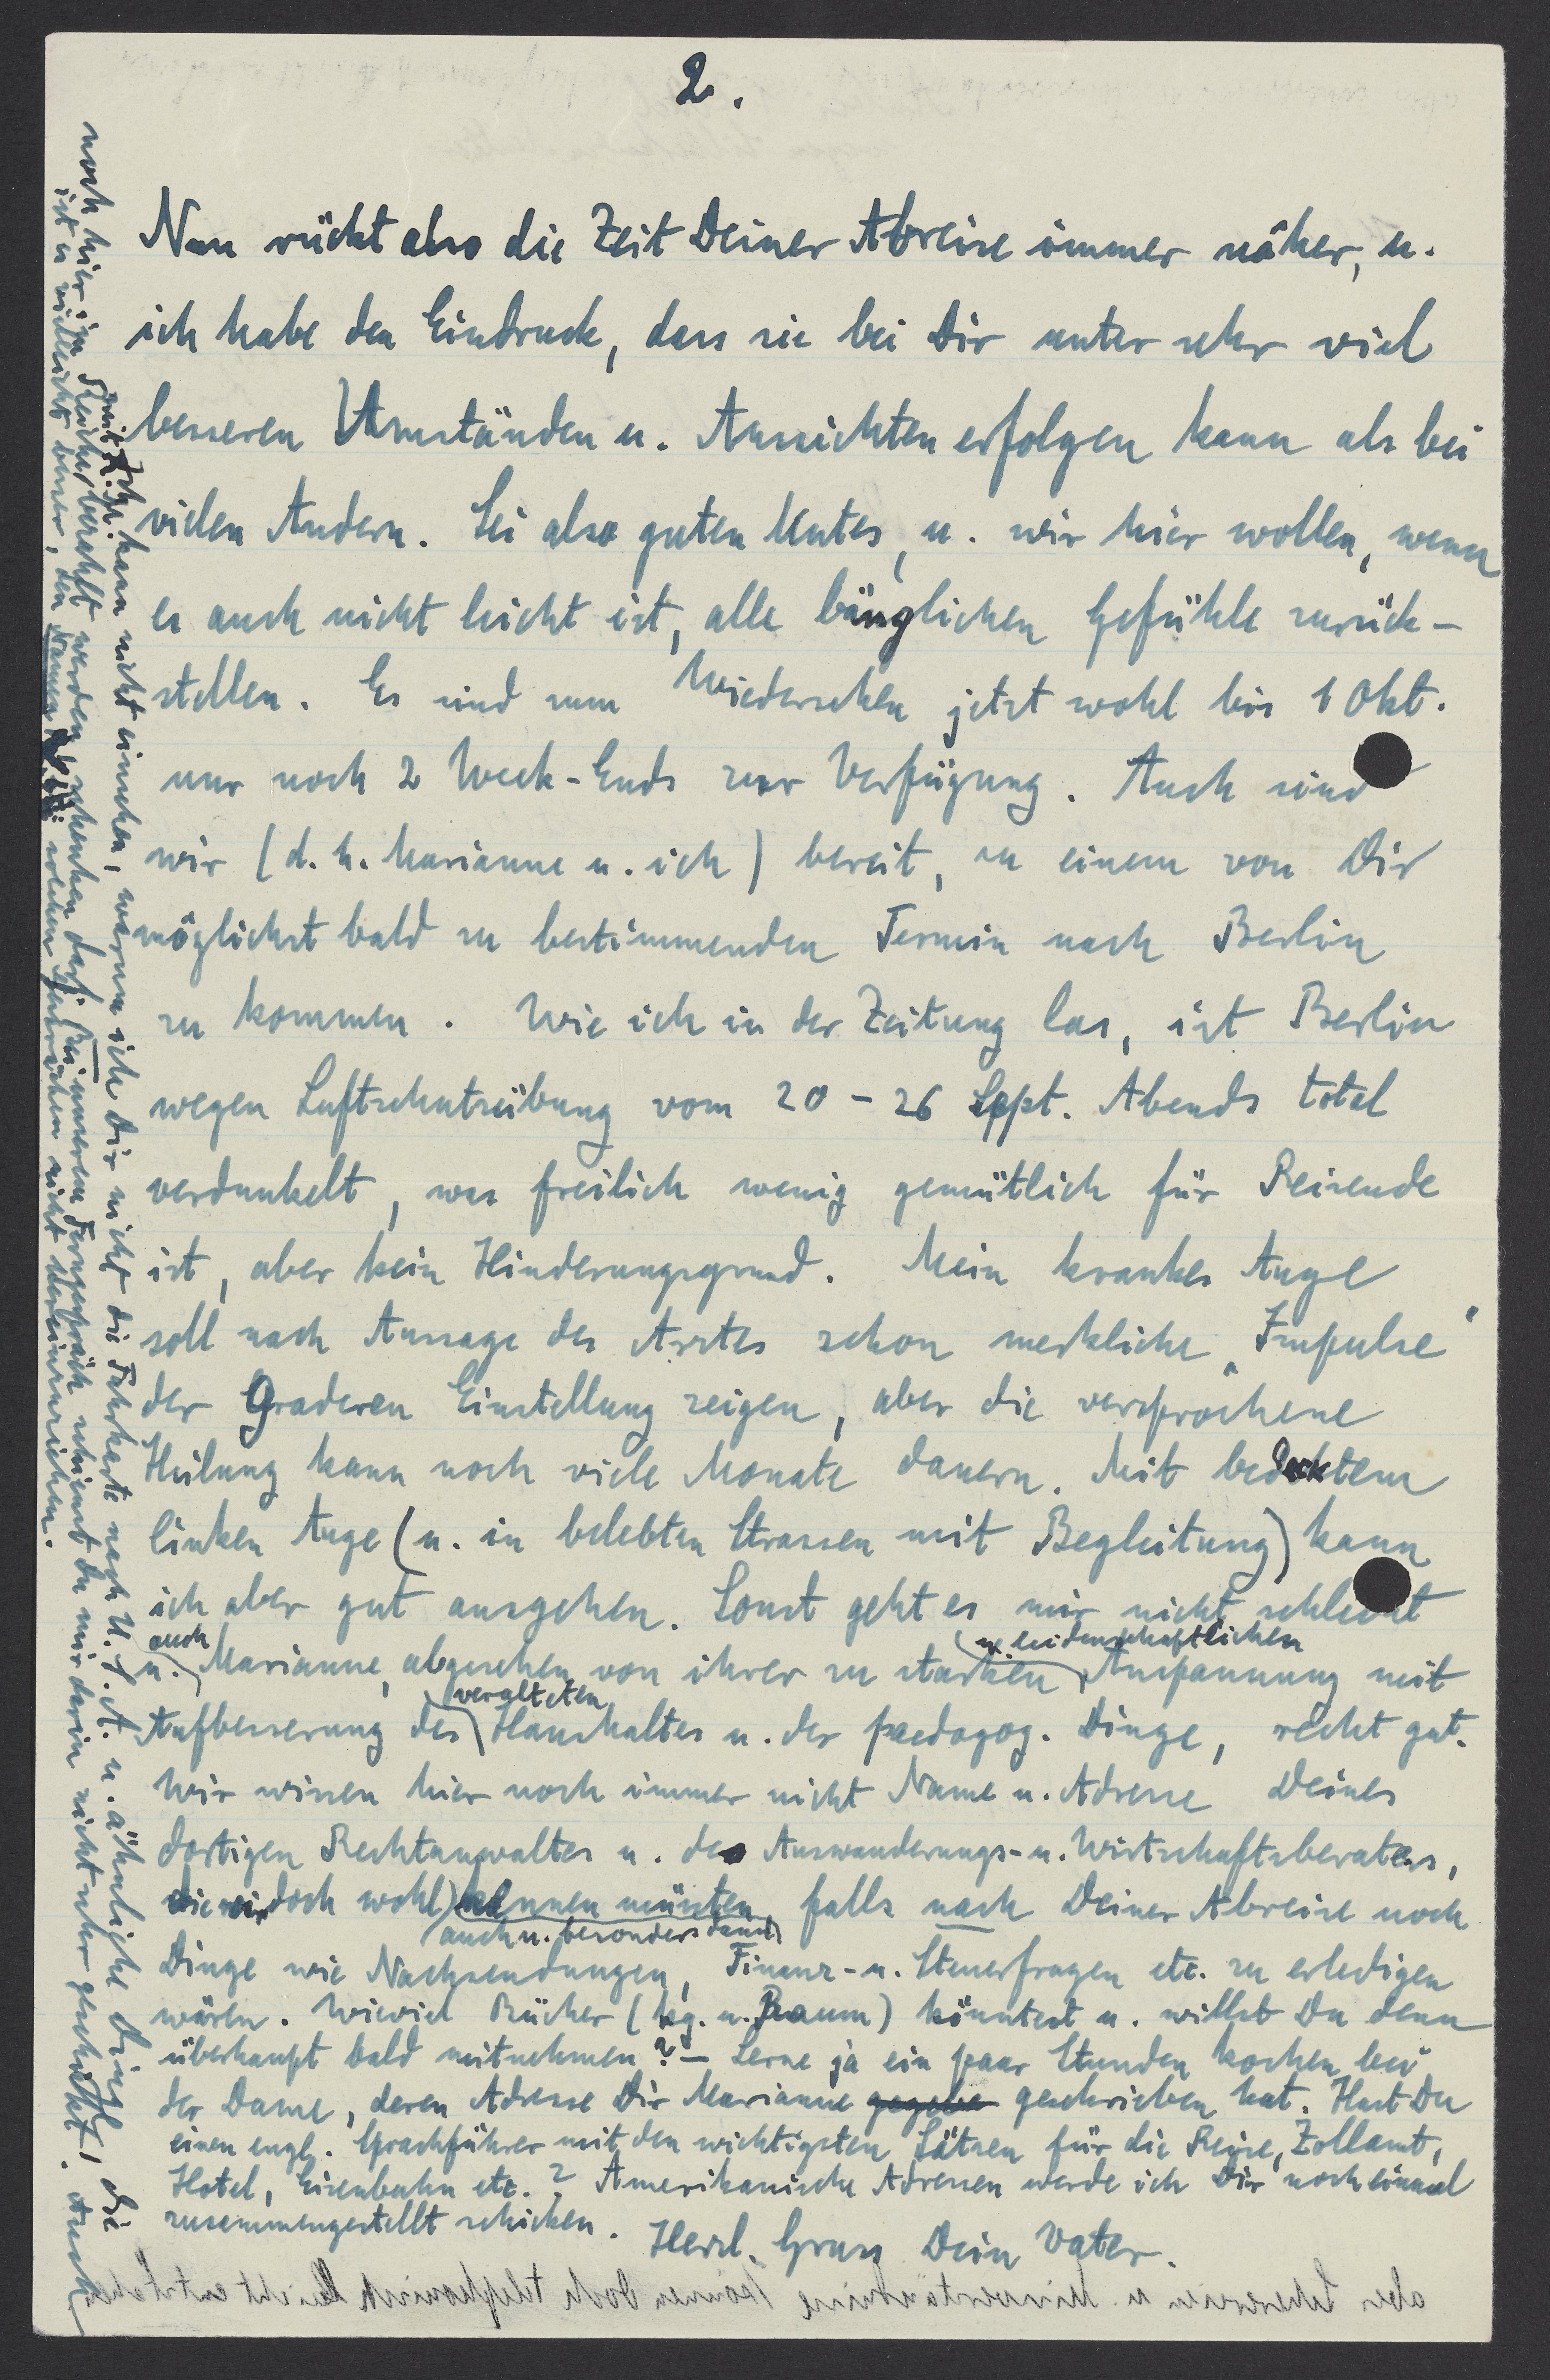 2.
Nun rückt also die Zeit Deiner Abreise immer näher, u.
ich habe den Eindruck, dass sie bei Dir unter sehr viel
besseren Umständen u. Aussichten erfolgen kann als bei
vielen Andern. Sei also guten Mutes, u. wir hier wollen, wenn
es auch nicht leicht ist, alle bänglichen Gefühle zurück-
stellen. Es sind zum Wiedersehen jetzt wohl bis 1 Okt.
nur noch 2 Week-Ends zur Verfügung. Auch sind
wir (d. h. Marianne u. ich) bereit, zu einem von Dir
möglichst bald zu bestimmenden Termin nach Berlin
zu kommen. Wie ich in der Zeitung las, ist Berlin
wegen Luftschutzübung vom 20 - 26 Sept. Abends total
verdunkelt, was freilich wenig gemütlich für Reisende
ist, aber kein Hinderungsgrund. Mein krankes Auge
soll nach Aussage des Arztes schon merkliche „Impulse"
der Graderen Einstellung zeigen, aber die versprochene
Heilung kann noch viele Monate dauern. Mit bedecktem
linken Auge (u. in belebten Strassen mit Begleitung) kann
ich aber gut ausgehen. Sonst geht es mir nicht schlecht
u. auch Marianne, abgesehen von ihrer zu starken u. leidenschaftlichen Anspannung mit
Aufbesserung des veralteten Haushaltes u. der paedagog. Dinge, recht gut.
Wir wissen hier noch immer nicht Name u. Adresse Deines
dortigen Rechtanwaltes u. des Auswanderungs- u. Wirtschaftsberaters,
die wir doch wohl kennen müssten, auch u. besonders dann falls nach Deiner Abreise noch
Dinge wie Nachsendungen, Finanz- u. Steuerfragen etc. zu erledigen
wären. Wieviel Bücher (kg. u. Raum) könntest u. willst Du denn
überhaupt bald mitnehmen? - Lerne ja ein paar Stunden kochen bei
der Dame, deren Adresse Dir Marianne gegebe geschrieben hat. Hast Du
einen engl. Sprachführer mit den wichtigsten Sätzen für die Reise, Zollamt,
Hotel, Eisenbahn etc.? Amerikanische Adressen werde ich Dir noch einmal
zusammengestellt schicken. Herzl. Gruss Dein Vater.
Ich kann nicht einsehen, warum ich Dir nicht die Fahrkarte nach U.S.A. u. ähnliche Dinge, die
noch hier im Reiche bezahlt werden, schenken darf. Bei unserem Ferngespräch schienst Du mir darin nicht sehr geschickt. Auch
ist es vielleicht besser, den Namen in solchen Gesprächen nicht hereinzuziehen.